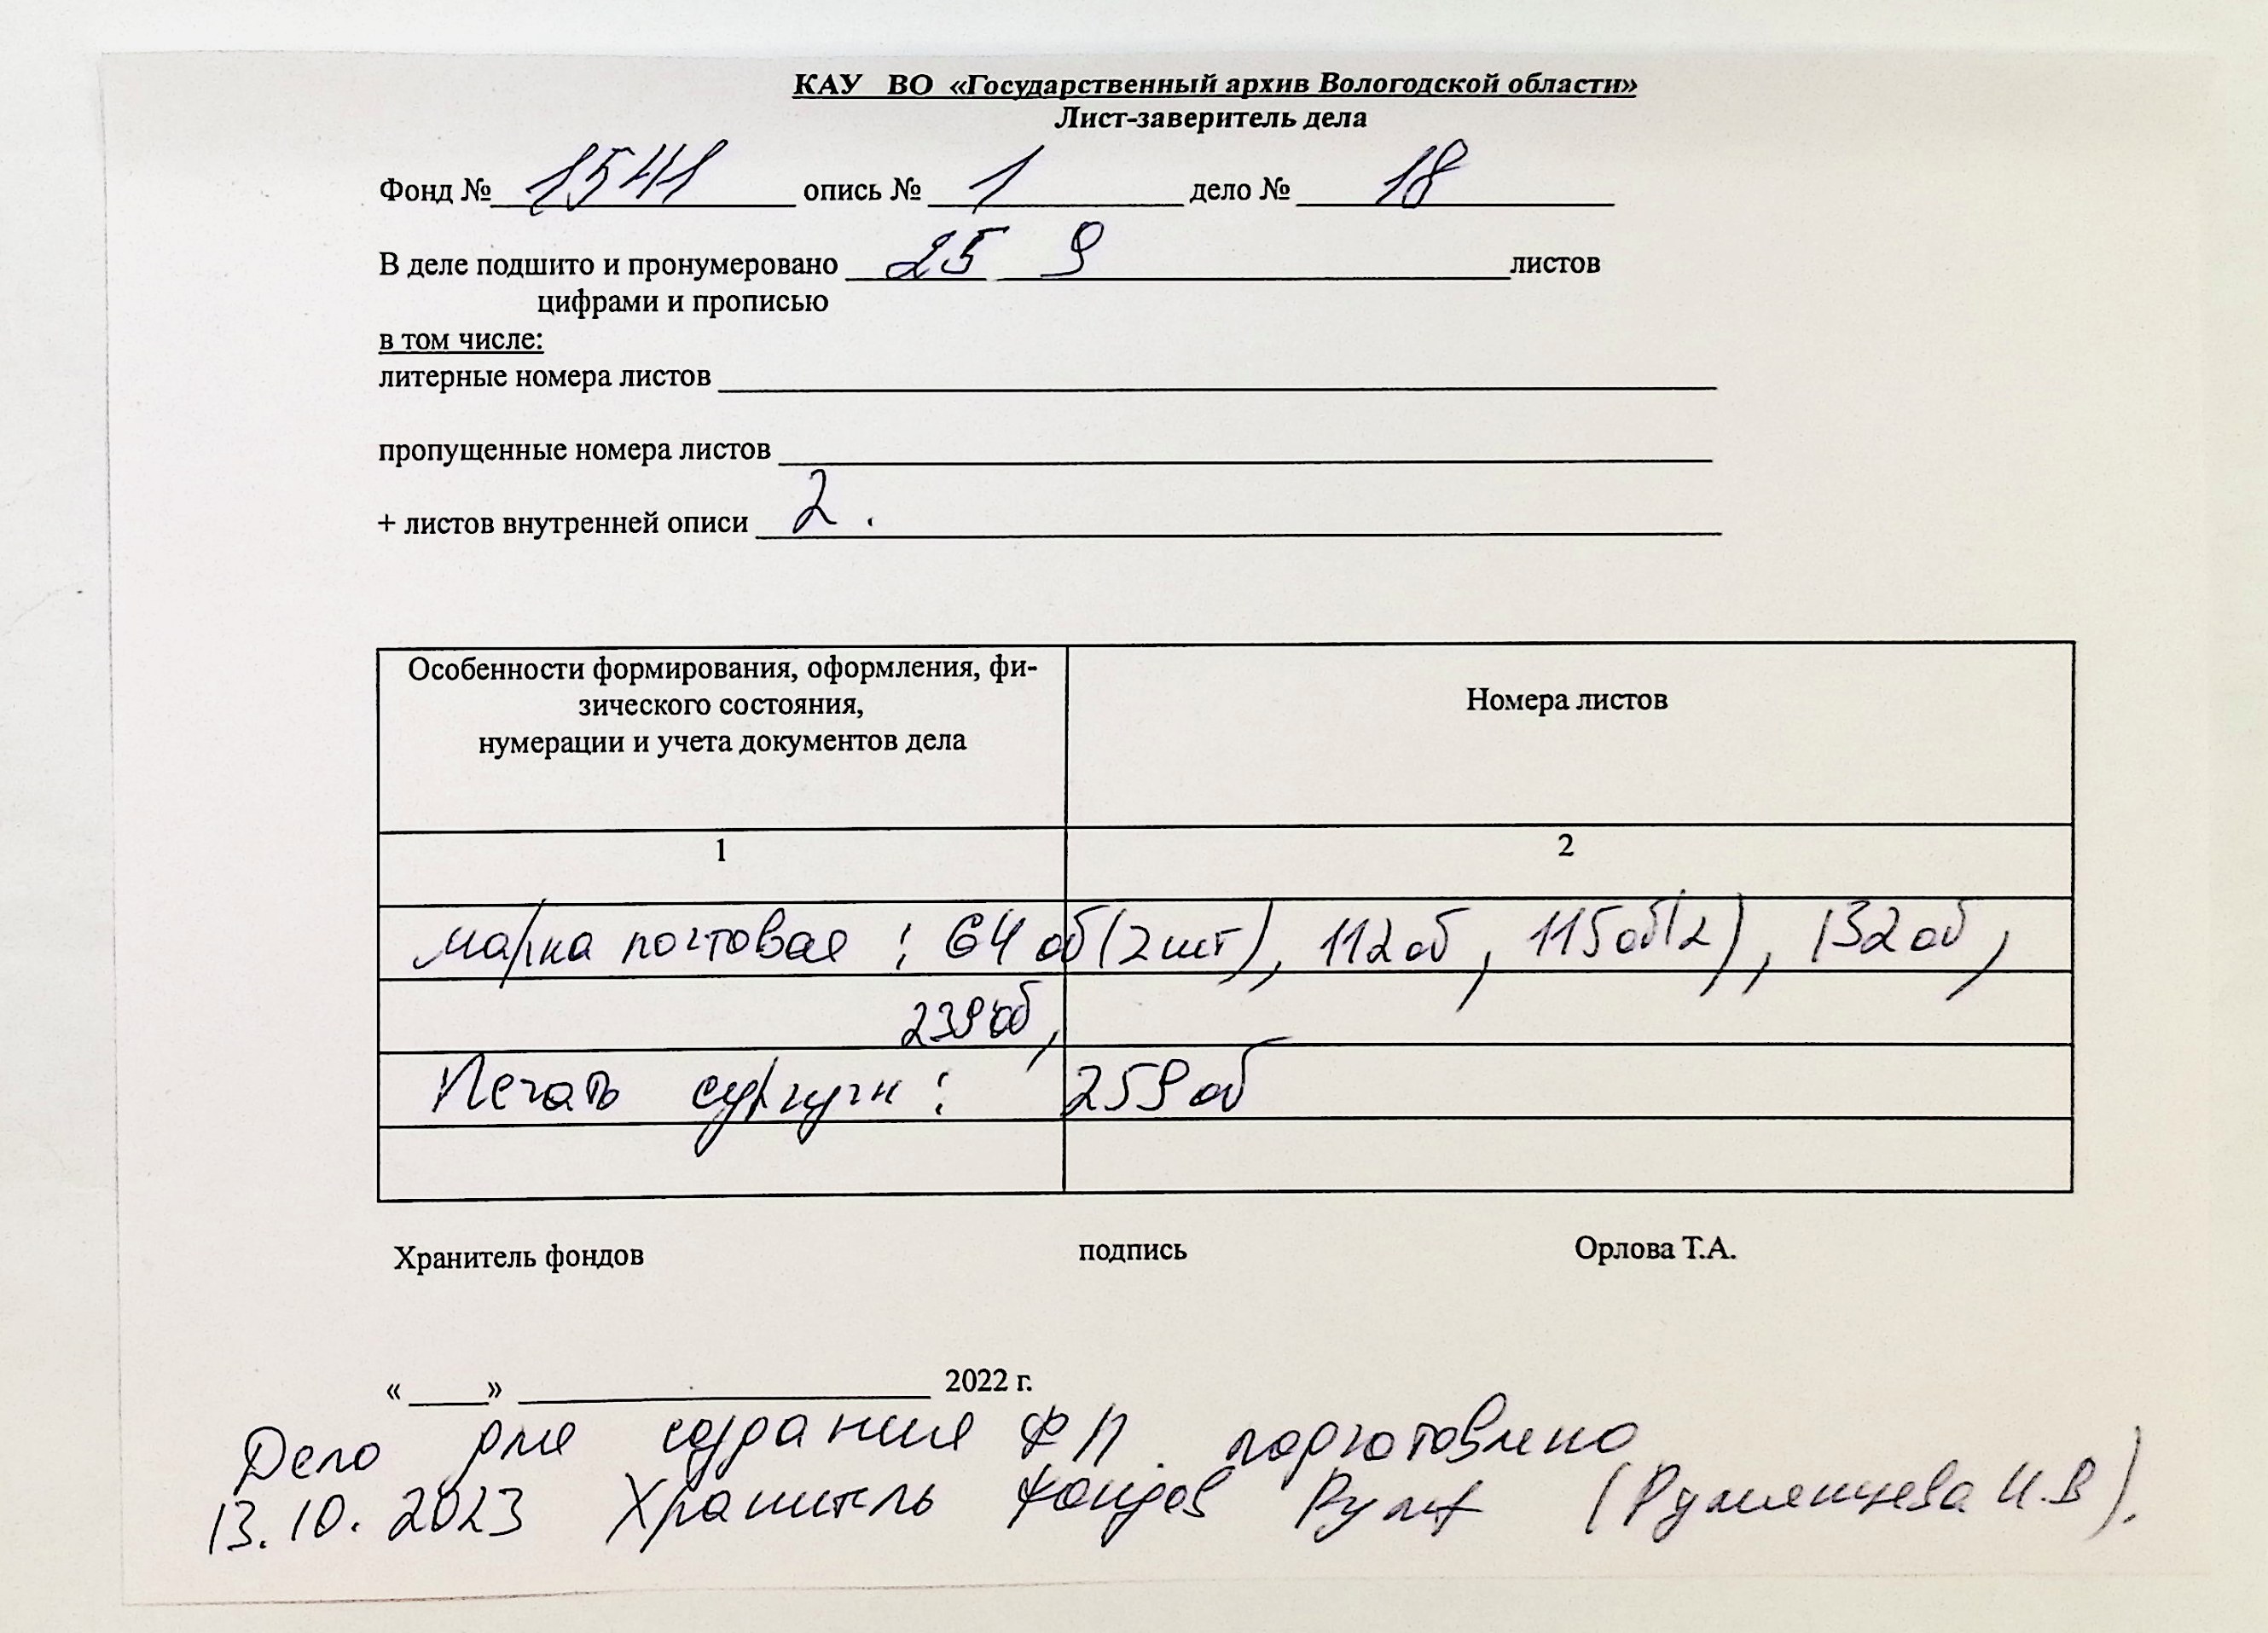 КАУ ВО «Государственный архив Вологодской области»
Лист-заверитель дела
Фонд № 1541 опись № 1 дело № 18
В деле подшито и пронумеровано 25 9 листов
цифрами и прописью
в том числе:
литерные номера листов
пропущенные номера листов
+ листов внутренней описи 2.
Особенности формирования, оформления, фи-
зического состояния,
нумерации и учета документов дела
Номера листов
1 2
марка почтовая : 64 об (2 шт), 112 об, 115 об (2), 132 об,
239 об,
Печать сургучн : 259 об
Хранитель фондов подпись Орлова Т.А.
« » 2022 г.
Дело для создания ФП. подготовлено
13.10.2023 Хранитель фондов (Румянцева И.В).